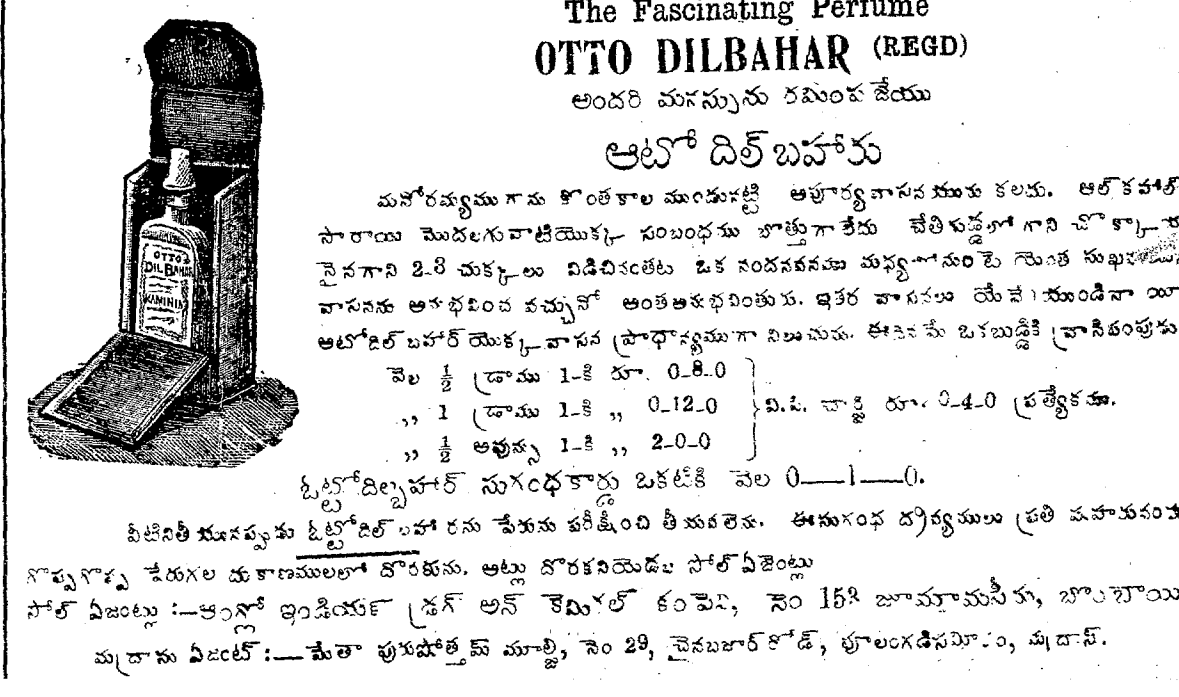 The Fascinating Perfume
OTTO DILBAHAR (REGD)
అందరి మనస్సును రమింప జేయు
ఆటో దిల్ బహారు
OTTO
DIL BAHAR
KAMINIA
మనోరమ్యము గాను కొంతకాల ముండునట్టి అపూర్వవాసన యును కలదు. ఆల్ కహాల్
సారాయి మొదలగువాటియొక్క సంబంధము బొత్తుగా లేదు చేతిగుడ్డలో గాని చొక్కా
నైనగాని 2-3 చుక్కలు విడిచినంతట ఒక నందనవనము మధ్య యెంత
వాసనను అనుభవించ వచ్చునో అంతఅనుభవింతురు. ఇతర వాసనలు
ఆటోదిల్ బహార్ యొక్క వాసన ప్రాధాన్యముగా నిలుచును. ఈదినమే ఒకబుడ్డికి వ్రాసిపంపుడు
వెల ½ డ్రాము 1-కి రూ. 0-8-0
,, 1 డ్రాము 1-కి ,, 0-12-0 వి. పి. చార్జి రూ. 0-4-0 ప్రత్యేకము.
,, ½ అవున్సు 1-కి ,, 2-0-0
ఓట్టోదిల్బహార్ సుగంధకార్డు ఒకటికి వెల 0—1—0.
వీటినితీయునప్పుడు ఓట్టోదిల్ బహారను పేరును పరీక్షించి తీయవలెను. ఈసుగంధ ద్రవ్యములు ప్రతి
గొప్పగొప్ప పేరుగల దుకాణములలో దొరకును. అట్లు దొరకనియెడల సోల్ ఏజెంట్లు
సోల్ ఏజంట్లు :—ఆంగ్లో ఇండియన్ డ్రగ్ అన్ కెమికల్ కంపెని, నెం 155 జూమ్మామసీదు, బొంబాయి
మద్రాసు ఏజంట్ :—మేతా పురుషోత్తమ్ మూల్జి, నెం 29, చైనబజార్ రోడ్, పూలంగడిసమీపం, మద్రాస్.